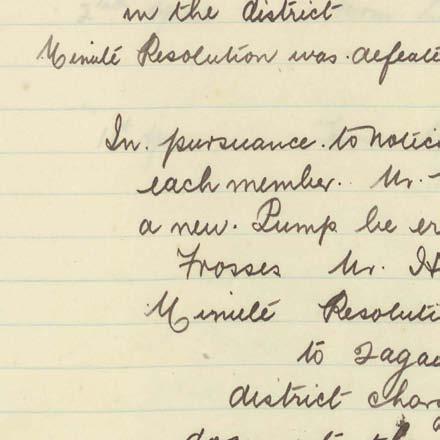 in the district
Minute Resolution was defeate
In pursuance to notic
each member. Mr.
a new Pump be er
Frosses Mr. H
Minute Resoluti
to
district char